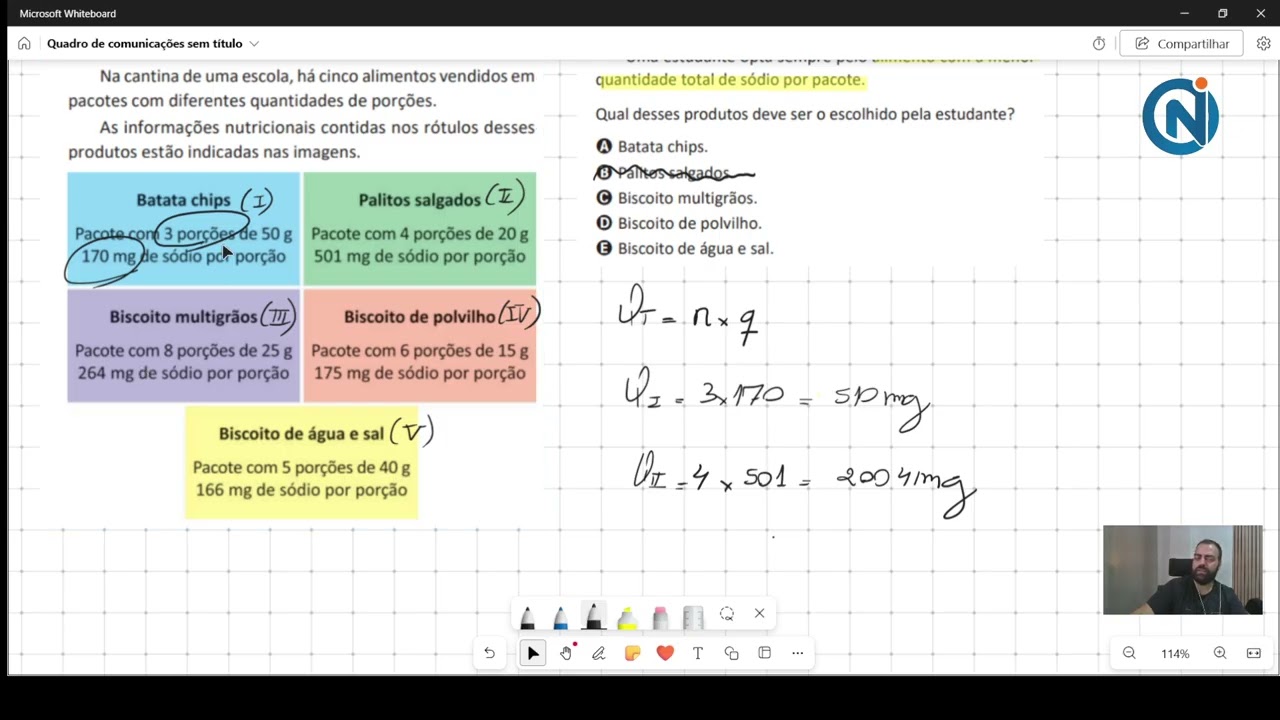 Microsoft Whiteboard
Quadro de comunicações sem título
Compartilhar
Na cantina de uma escola, há cinco alimentos vendidos em
pacotes com diferentes quantidades de porções.
As informações nutricionais contidas nos rótulos desses
produtos estão indicadas nas imagens.
Batata chips (I)
Pacote com 3 porções de 50 g
170 mg de sódio por porção
Palitos salgados (II)
Pacote com 4 porções de 20 g
501 mg de sódio por porção
Biscoito multigrãos (III)
Pacote com 8 porções de 25 g
264 mg de sódio por porção
Biscoito de polvilho (IV)
Pacote com 6 porções de 15 g
175 mg de sódio por porção
Biscoito de água e sal (V)
Pacote com 5 porções de 40 g
166 mg de sódio por porção
Uma estudante opta sempre pelo alimento com a menor
quantidade total de sódio por pacote.
Qual desses produtos deve ser o escolhido pela estudante?
A Batata chips.
B Palitos salgados.
C Biscoito multigrãos.
D Biscoito de polvilho.
E Biscoito de água e sal.
QT = n x q
QI = 3x170 = 510 mg
QII = 4 x 501 = 2004 mg
CN
T
114%